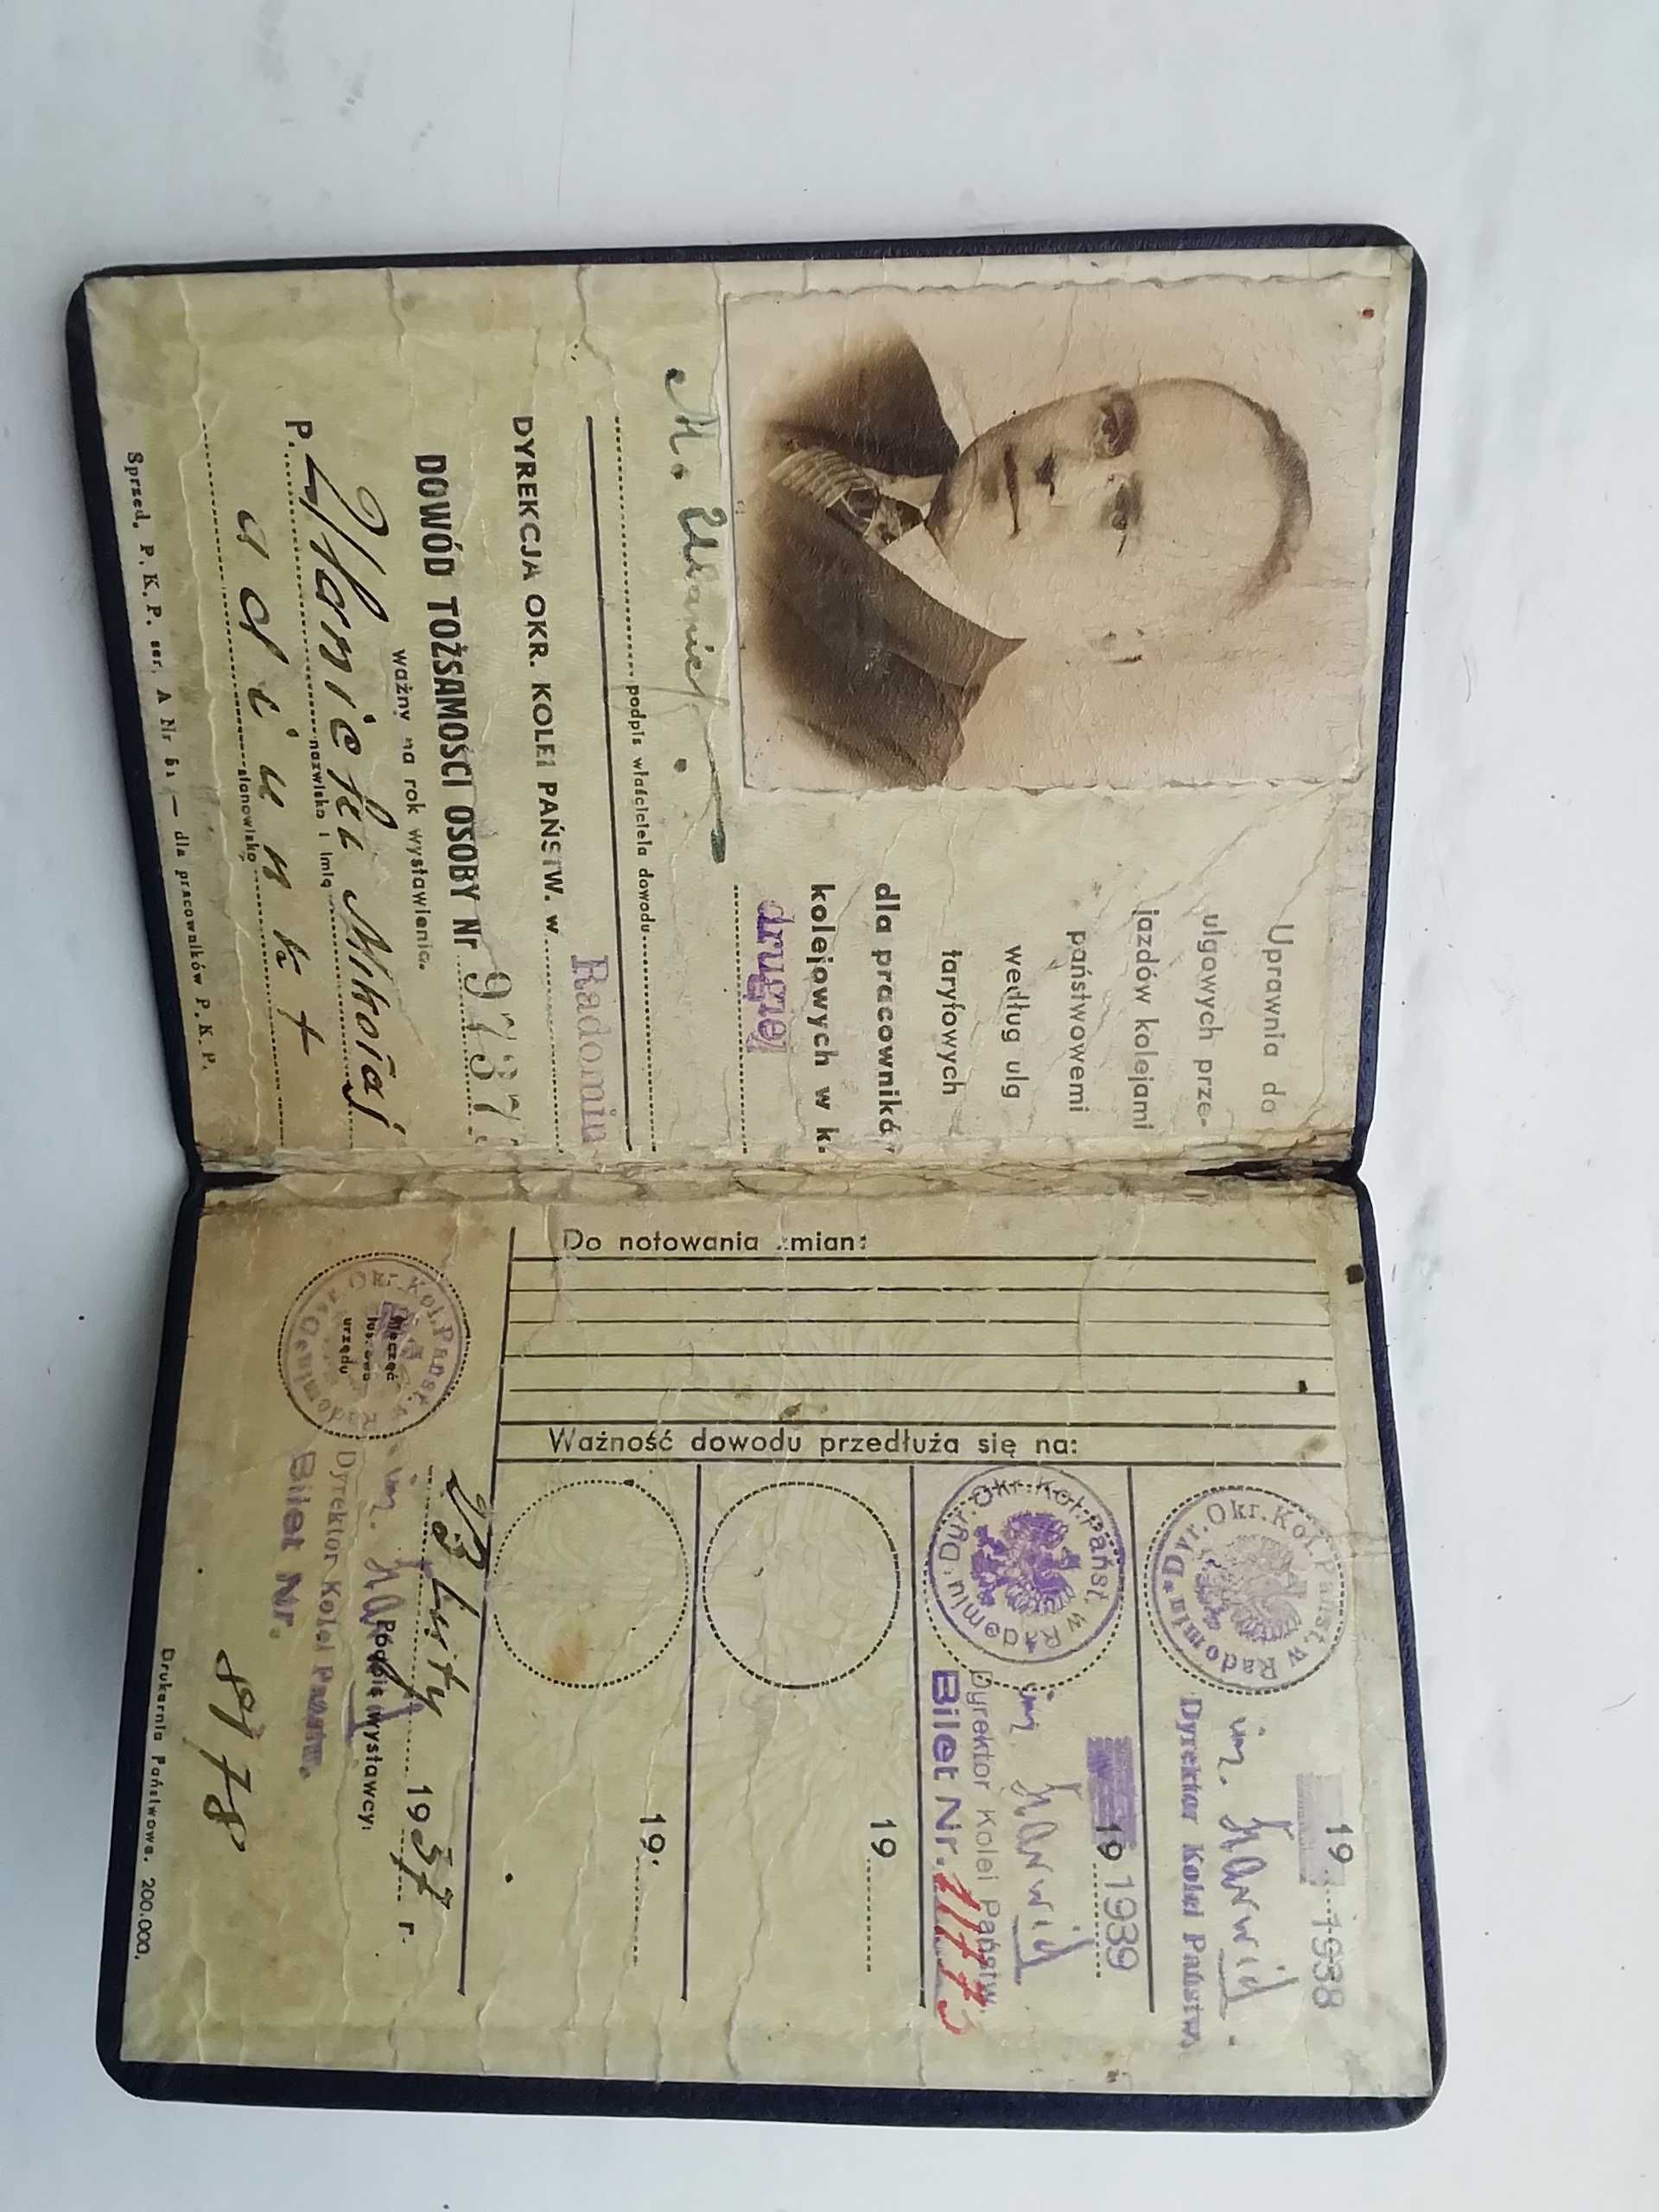 Uprawnia do
ulgowych prze-
jazdów kolejami
państwowemi
według ulg
taryfowych
dla pracowników
kolejowych w k.
drugiej
podpis właściciela dowodu
DYREKCJA OKR. KOLEI PAŃSTW. w Radomiu
DOWÓD TOŻSAMOŚCI OSOBY Nr 9737
ważny na rok wystawienia.
P. Mikołaj
nazwisko i imię
adiunkt
stanowisko
Sprzed. P. K. P. ser. A Nr 51 — dla pracowników P. K. P.
Do notowania zmian:
Ważność dowodu przedłuża się na:
19 1938
Dyr. Okr. Kol. Państ. w Radomiu
inż.
Dyrektor Kolei Państw.
19 1939
Dyr. Okr. Kol. Państ. w Radomiu
inż.
Dyrektor Kolei Państw.
Bilet Nr.
19
19
luty 1937 r.
Dyr. Okr. Kol. Państ. w Radomiu
Pieczęć
tuszowa
urzędu
Podpis wystawcy:
inż.
Dyrektor Kolei Państw.
Bilet Nr.
8178
Drukarnia Państwowa. 200.000.